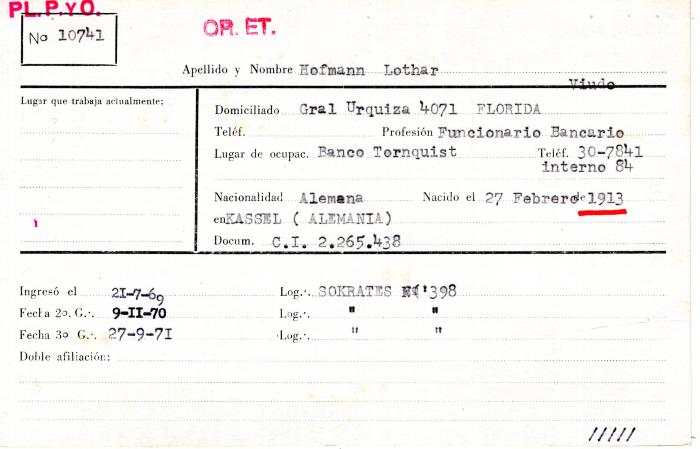 PL.P.yO.
No 10741
OR. ET.
Apellido y Nombre Hofmann Lothar
Viudo
Lugar que trabaja actualmente:
Domiciliado Gral Urquiza 4071 FLORIDA
Teléf. Profesión Funcionario Bancario
Lugar de ocupac. Banco Tornquist Teléf. 30-7841
interno 84
Nacionalidad Alemana Nacido el 27 Febrero de 1913
en KASSEL ( ALEMANIA)
Docum. C.I. 2.265.438
Ingresó el 21-7-69 Log.·. SOKRATES Nº 398
Fecha 2o. G.·. 9-II-70 Log.·. " "
Fecha 3o G.·. 27-9-71 Log.·. " "
Doble afiliación:
/////